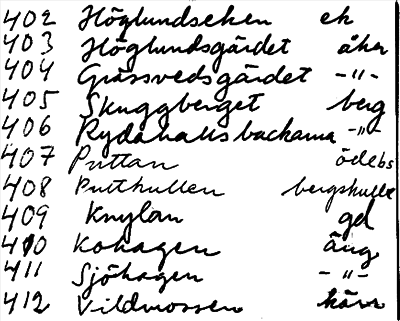 402 Höglundseken ek
403 Höglundsgärdet åker
404 Grässvedsgärdet -"-
405 Skuggberget berg
406 Rydahallsbackarna -"-
407 Puttan ödebs
408 Putthullen bergskulle
409 Knylan gd
410 Kohagen äng
411 Sjöhagen -"-
412 Vildmossen kärr